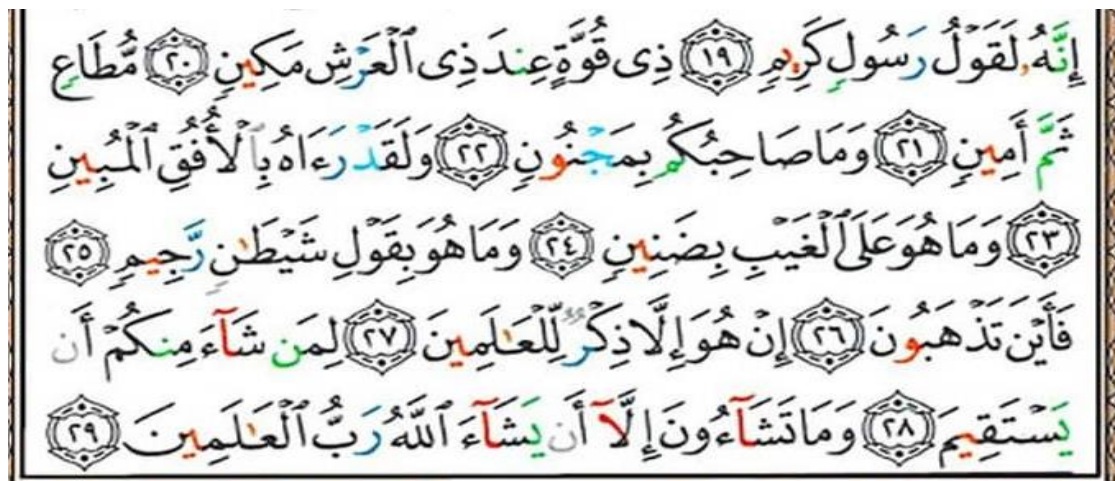 إِنَّهُۥ لَقَوْلُ رَسُولٍ كَرِيمٍ ١٩ ذِى قُوَّةٍ عِندَ ذِى ٱلْعَرْشِ مَكِينٍ ٢٠ مُّطَاعٍ
ثَمَّ أَمِينٍ ٢١ وَمَا صَاحِبُكُم بِمَجْنُونٍ ٢٢ وَلَقَدْ رَءَاهُ بِٱلْأُفُقِ ٱلْمُبِينِ
٢٣ وَمَا هُوَ عَلَى ٱلْغَيْبِ بِضَنِينٍ ٢٤ وَمَا هُوَ بِقَوْلِ شَيْطَٰنٍ رَّجِيمٍ ٢٥
فَأَيْنَ تَذْهَبُونَ ٢٦ إِنْ هُوَ إِلَّا ذِكْرٌ لِّلْعَٰلَمِينَ ٢٧ لِمَن شَآءَ مِنكُمْ أَن
يَسْتَقِيمَ ٢٨ وَمَا تَشَآءُونَ إِلَّآ أَن يَشَآءَ ٱللَّهُ رَبُّ ٱلْعَٰلَمِينَ ٢٩